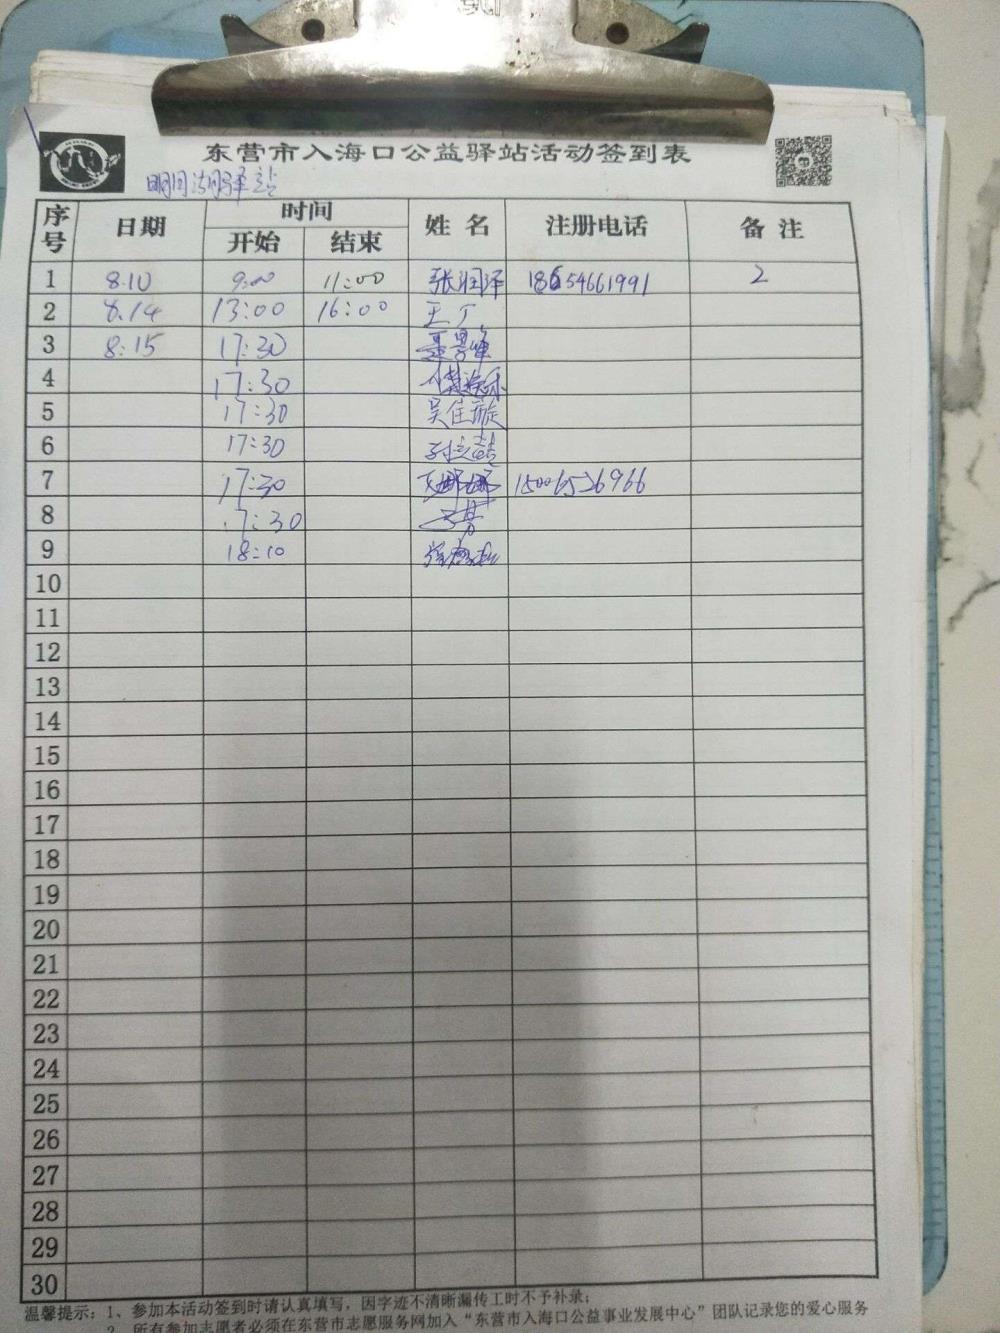 东营市入海口公益驿站活动签到表
明月湖驿站
序号 日期 时间 姓名 注册电话 备注
开始 结束
1 8.10 9:00 11:00 张润泽 18654661991 2
2 8.14 13:00 16:00 王丁
3 8:15 17:30
4 17:30
5 17:30 吴佳璇
6 17:30
7 17:30 15006526966
8 17:30
9 18:10
10
11
12
13
14
15
16
17
18
19
20
21
22
23
24
25
26
27
28
29
30
温馨提示：1、参加本活动签到时请认真填写，因字迹不清晰漏传工时不予补录；
2、所有参加志愿者必须在东营市志愿服务网加入“东营市入海口公益事业发展中心”团队记录您的爱心服务